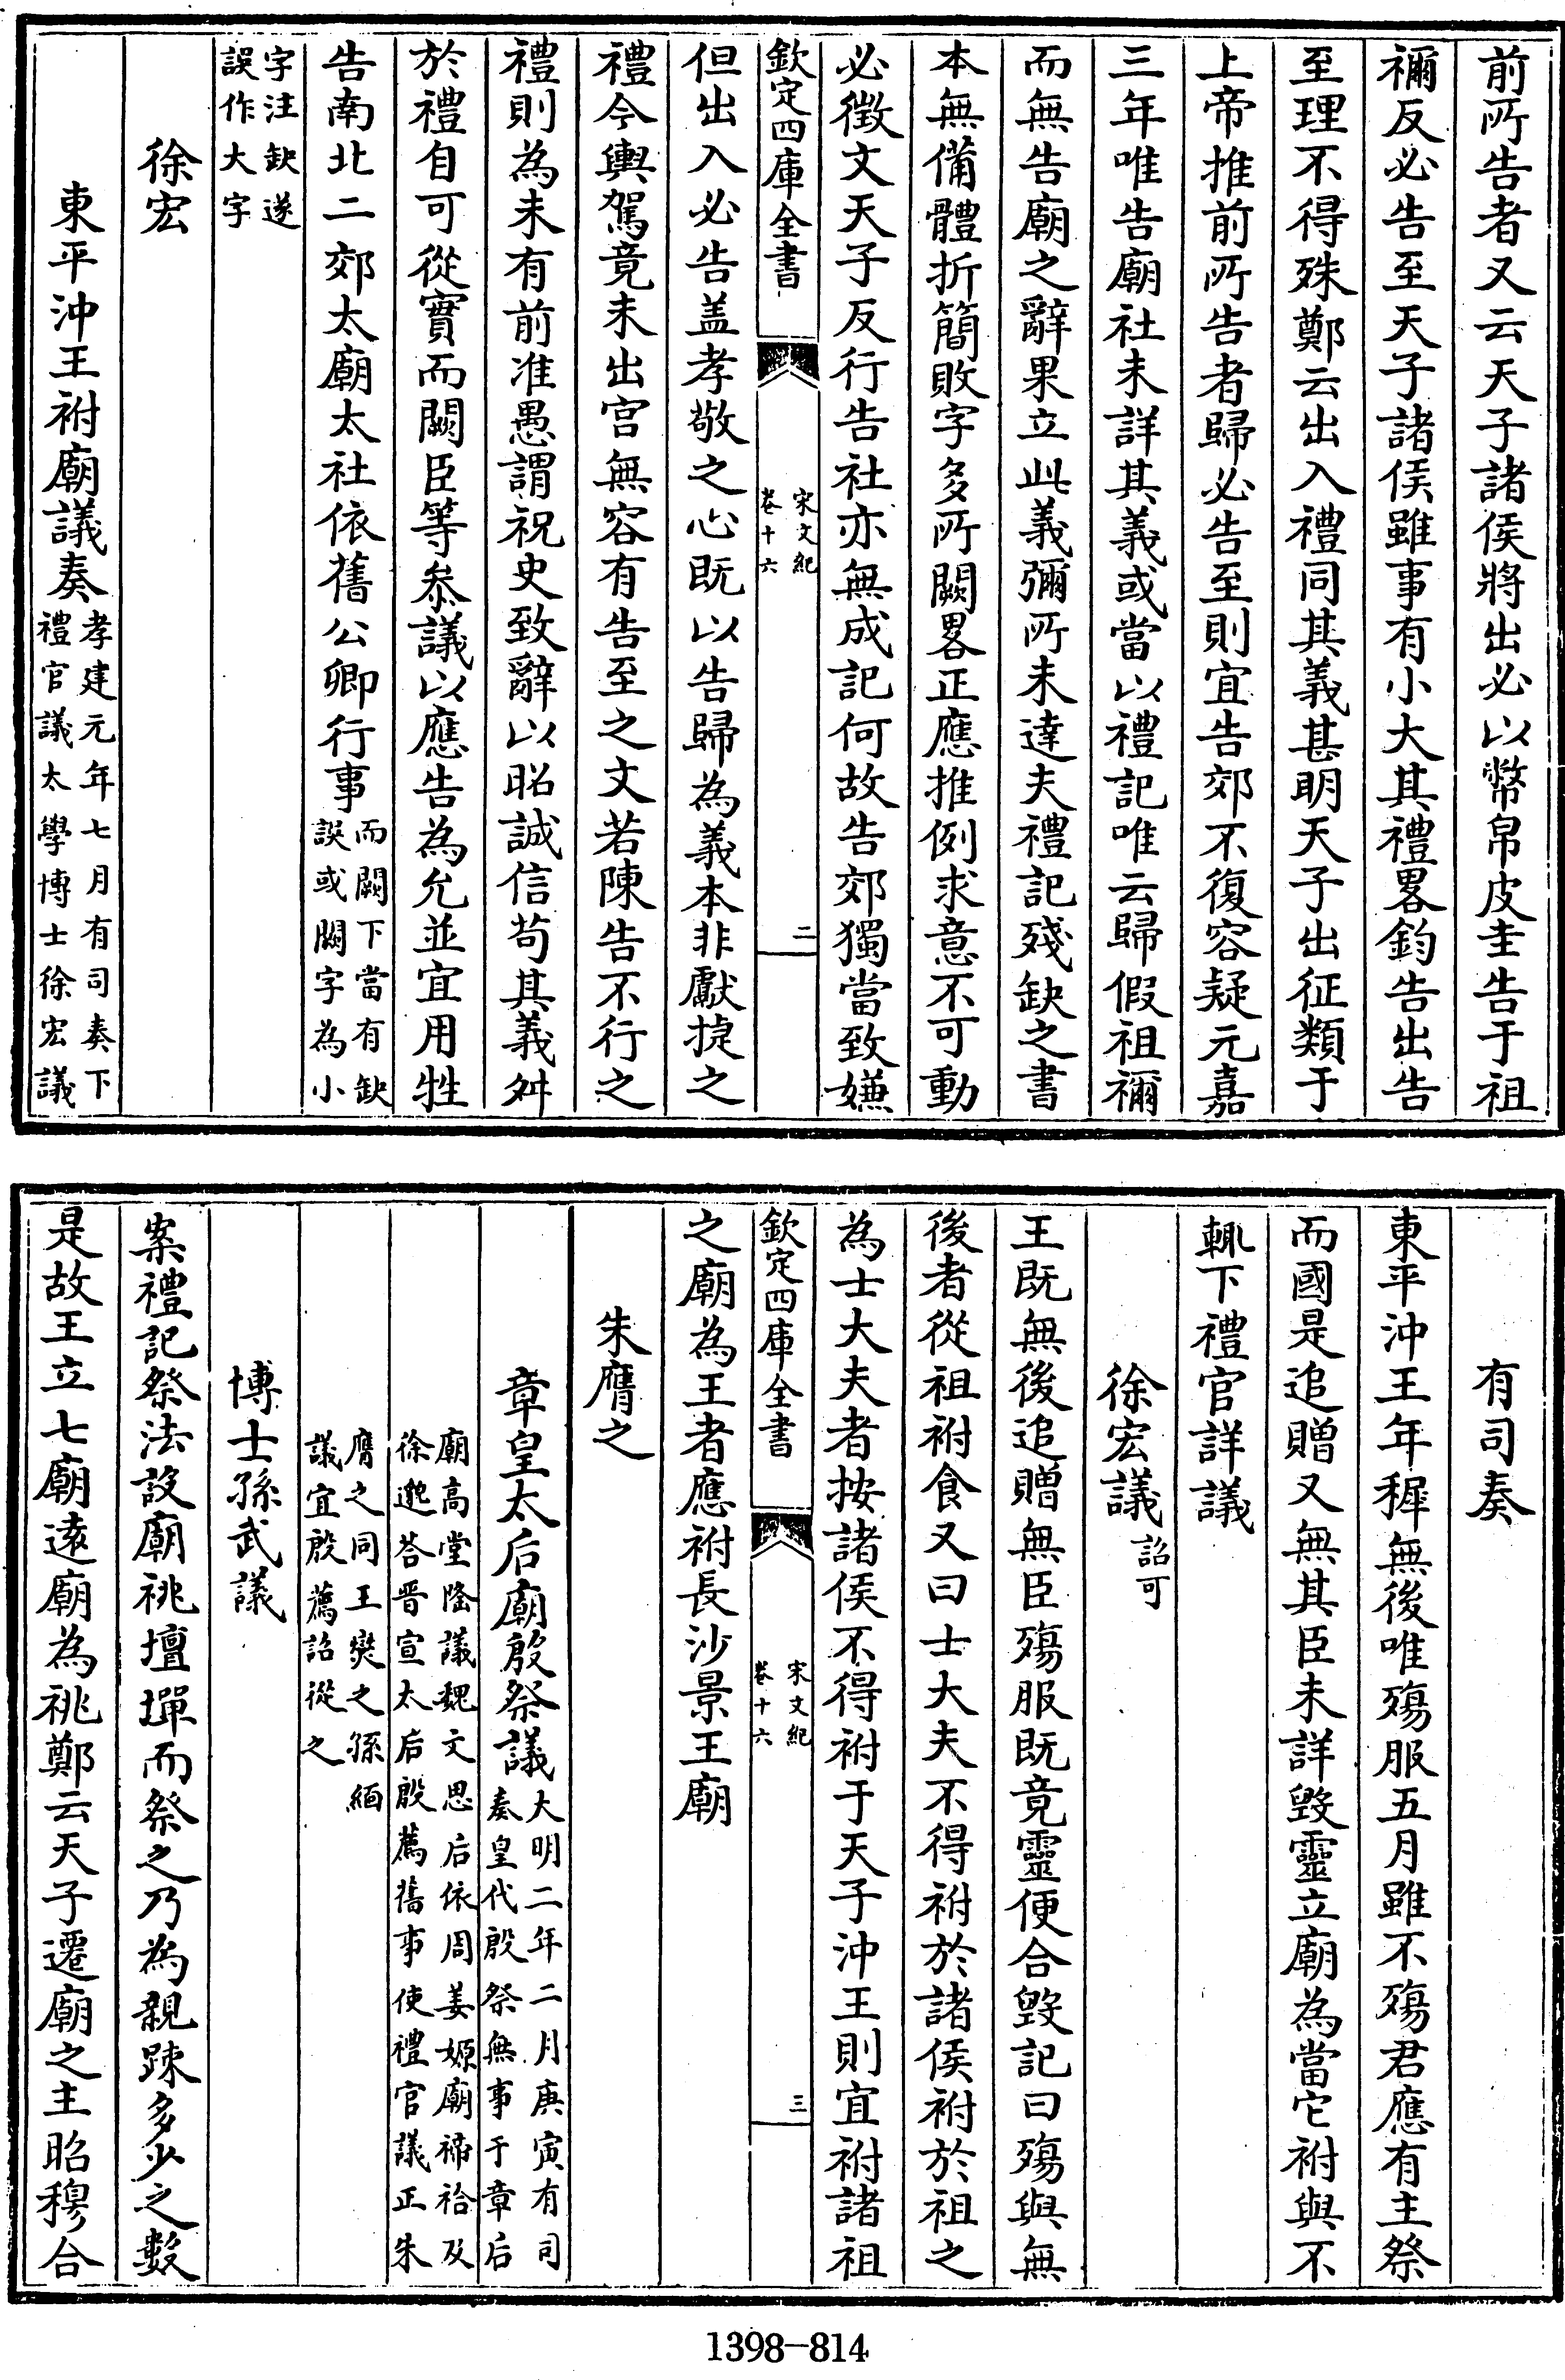 前所告者又云天子諸侯將出必以幣帛皮圭告于祖
禰反必告至天子諸侯雖事有小大其禮畧鈞告出告
至理不得殊鄭云出入禮同其義甚明天子出征類于
上帝推前所告者歸必告至則宜告郊不復容疑元嘉
三年唯告廟社未詳其義或當以禮記唯云歸假祖禰
而無告廟之辭果立此義彌所未達夫禮記殘缺之書
本無備體折簡敗字多所闕畧正應推例求意不可動
必徵文天子反行告社亦無成記何故告郊獨當致嫌
欽定四庫全書
宋文紀
卷十六
二
但出入必告盖孝敬之心既以告歸為義本非獻捷之
禮今輿駕竟未出宮無容有告至之文若陳告不行之
禮則為未有前准愚謂祝史致辭以昭誠信苟其義舛
於禮自可從實而闕臣等叅議以應告為允並宜用牲
告南北二郊太廟太社依舊公卿行事
而闕下當有缺
誤或闕字為小
字注缺遂
誤作大字
徐宏
東平沖王祔廟議奏
孝建元年七月有司奏下
禮官議太學博士徐宏議
有司奏
東平沖王年穉無後唯殤服五月雖不殤君應有主祭
而國是追贈又無其臣未詳毀靈立廟為當它祔與不
輒下禮官詳議
徐宏議
詔可
王既無後追贈無臣殤服既竟靈便合毀記曰殤與無
後者從祖祔食又曰士大夫不得祔於諸侯祔於祖之
為士大夫者按諸侯不得祔于天子沖王則宜祔諸祖
欽定四庫全書
宋文紀
卷十六
三
之廟為王者應祔長沙景王廟
朱膺之
章皇太后廟殷祭議
大明二年二月庚寅有司
奏皇代殷祭無事于章后
廟高堂隆議魏文思后依周姜嫄廟禘祫及
徐邈荅晉宣太后殷薦舊事使禮官議正朱
膺之同王燮之孫緬
議宜殷薦詔從之
博士孫武議
案禮記祭法設廟祧壇墠而祭之乃為親踈多少之數
是故王立七廟遠廟為祧鄭云天子遷廟之主昭穆合
1398-814